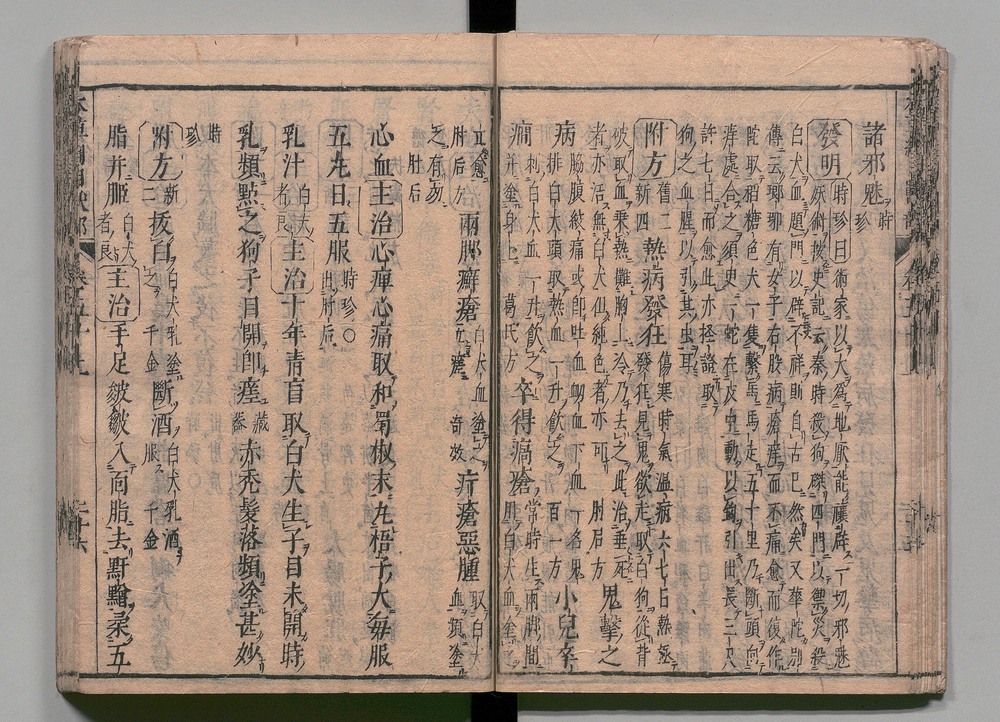 諸邪魅時珍
發明時珍曰術家以犬爲地厭能禳辟一切邪魅
妖術按史記云秦時殺狗磔四門以禦災殺
白犬血題門以辟不祥則自古已然矣又華陀別
傳云琅琊有女子右股病瘡痒而不痛愈而復作
陀取稻糠色犬一隻繫馬馬走五十里乃斷頭向
痒處合之須臾一蛇在皮中動以鉤引出長三尺
許七日而愈此亦怪證取
狗之血腥以引其虫耳
附方舊二新四熱病發狂傷寒時氣溫病六七日熱極
發狂見鬼欲走取白狗從背
破取血乘熱攤胸上冷乃去之此治垂死
者亦活無白犬但純色者亦可肘后方鬼擊之
病腸膜絞痛或卽吐血衄血下血一名鬼
排白犬頭取熱血一升飮之百一方小兒卒
癇刺白犬血一升飮之
并塗身上葛氏方卒得瘑瘡常時生兩脚間
用白犬血塗
立愈肘后方兩脚癬瘡白犬血塗之立瘥奇效疔瘡惡腫取白犬血頻塗
之有效肘后
心血主治心痺心痛取和蜀椒末丸梧子大每服
五丸日五服時珍○出肘后
乳汁白犬者良主治十年青盲取白犬生子目未開時
乳頻點之狗子目開卽瘥藏器赤禿髮落頻塗甚妙
時珍
附方新二拔白白犬乳塗之千金斷酒白犬乳酒服千金
脂并䏰白犬者良主治手足皴皺入面脂去䵟䵳柔五